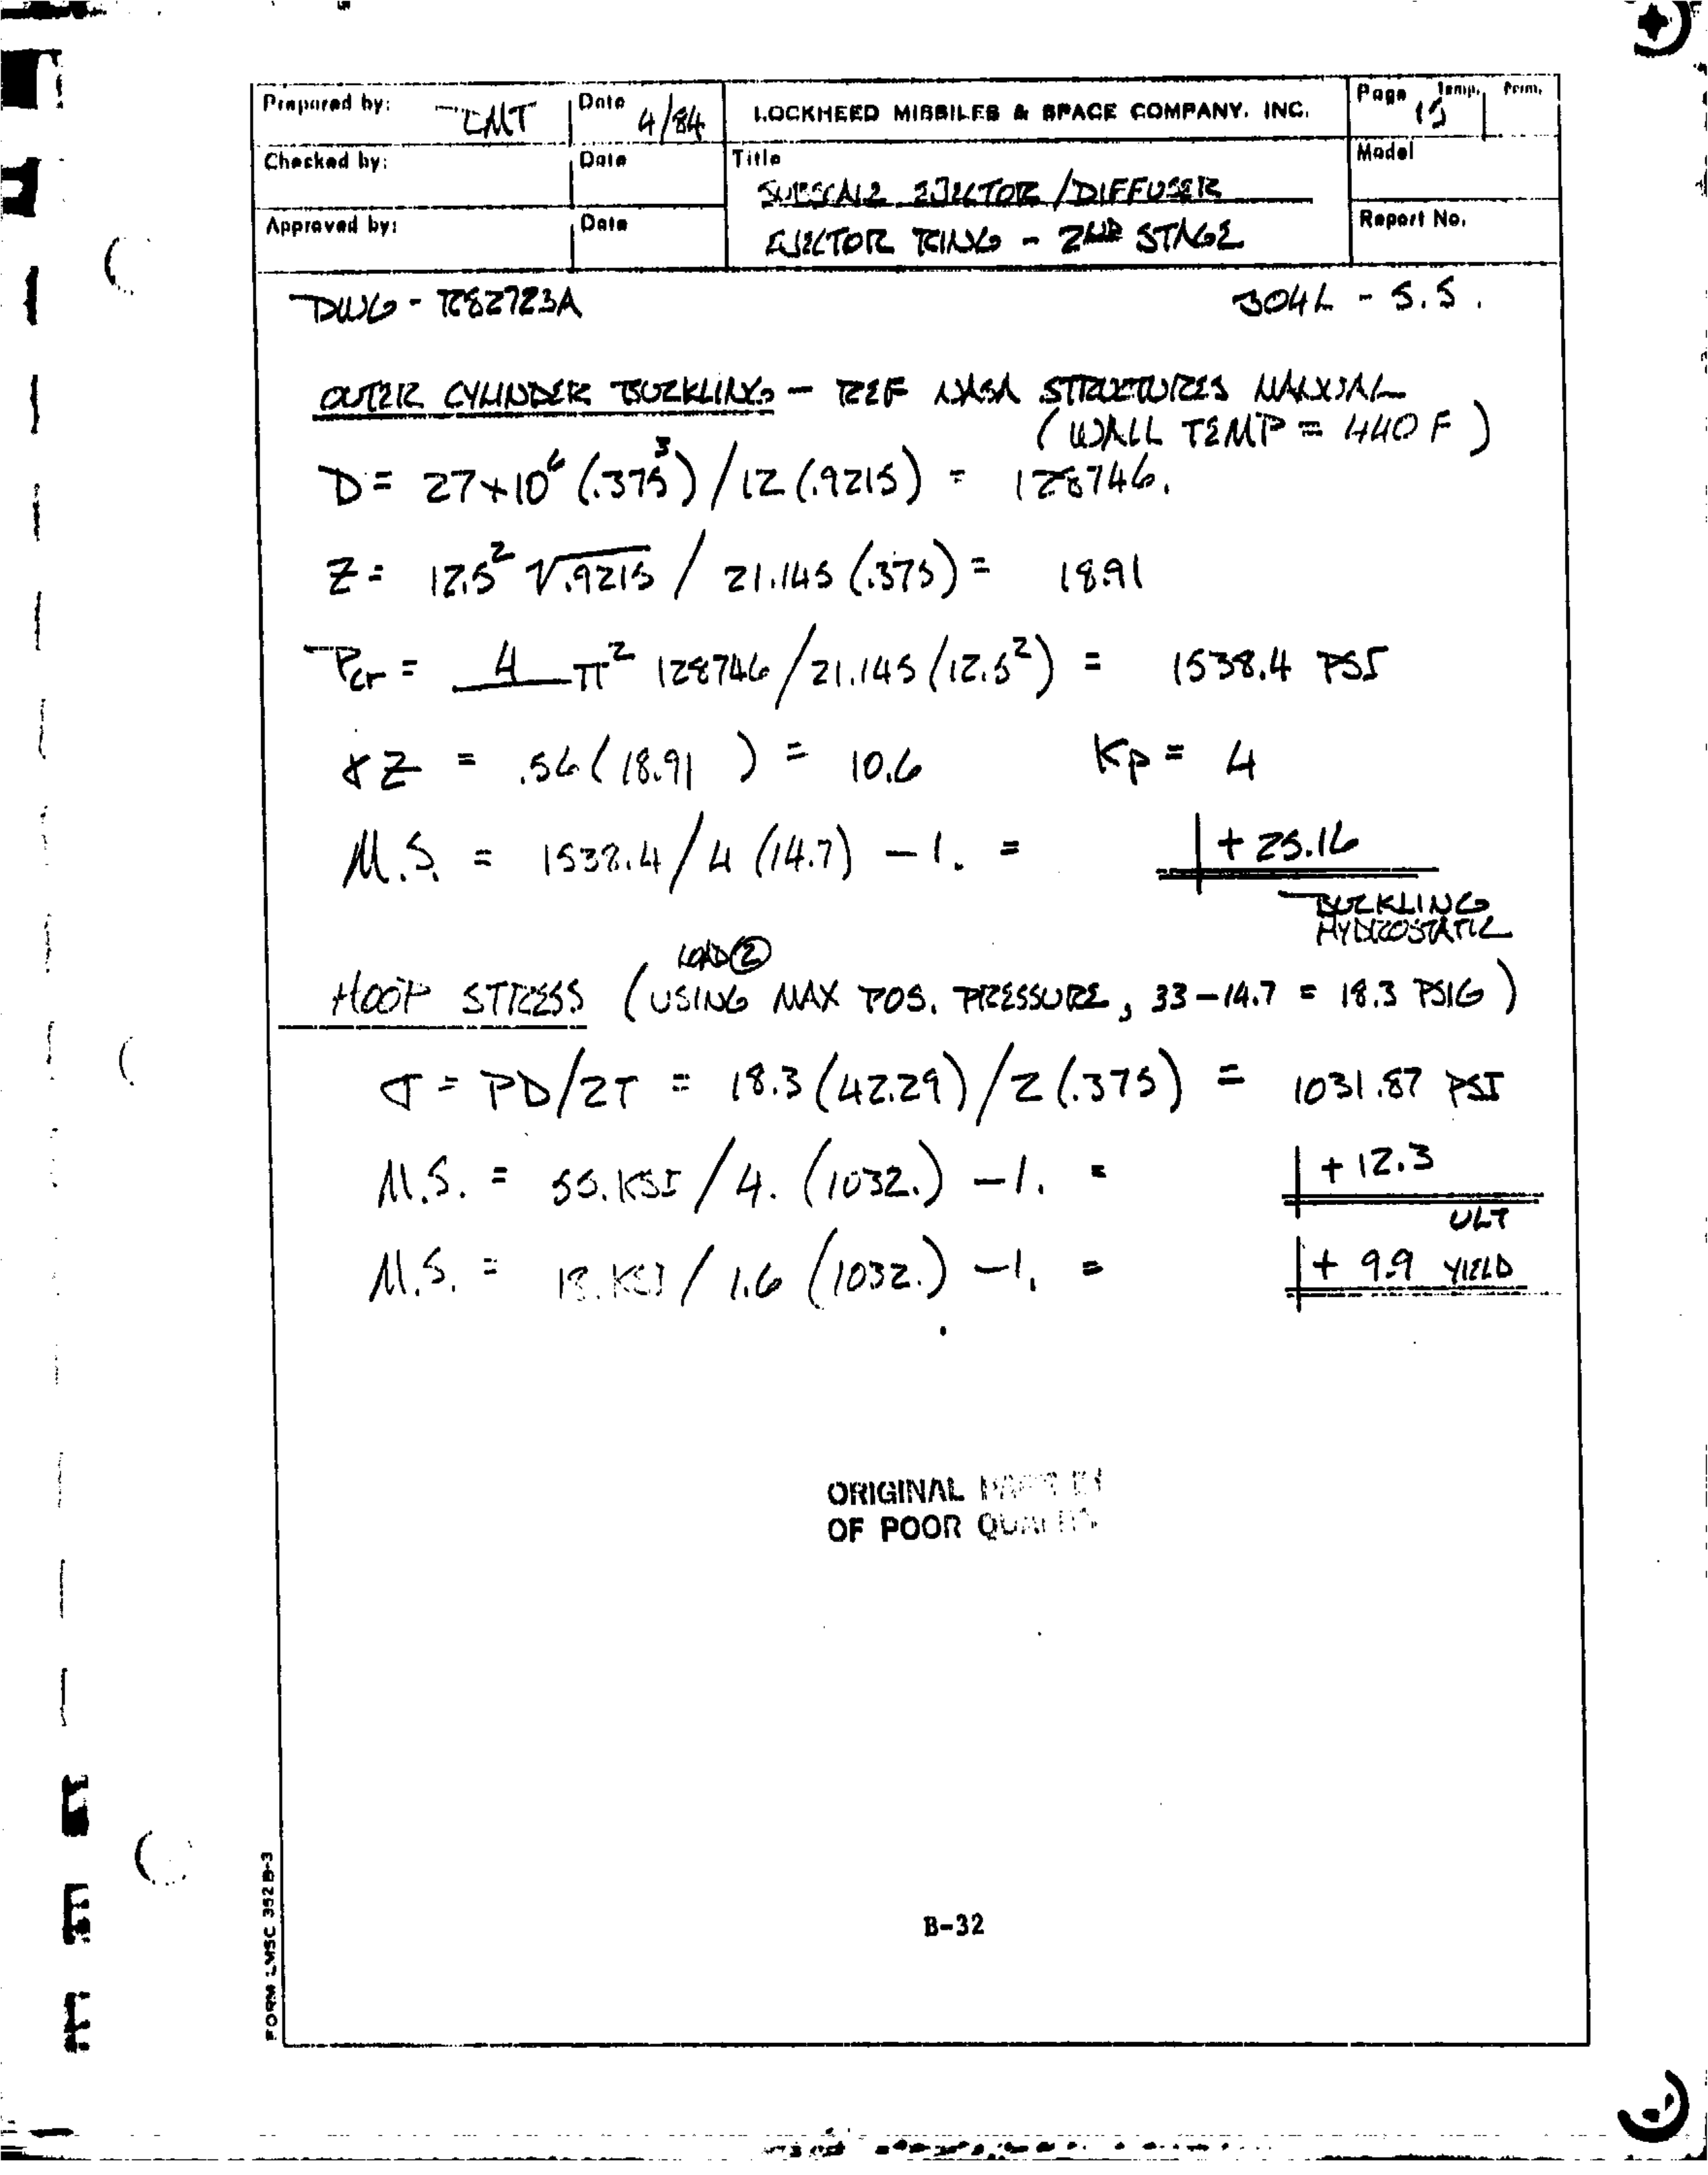 Prepared by: Date 4/84 LOCKHEED MISSILES & SPACE COMPANY, INC. Page Temp. Perm.
Checked by: Date Title Model
SUBSCALE EJECTOR/DIFFUSER
Approved by: Date EJECTOR RING - 2ND STAGE Report No.
DWG - R82723A 304L - S.S.
OUTER CYLINDER BUCKLING - REF NASA STRUCTURES MANUAL
(WALL TEMP = 440 F)
D = 27x10⁶ (.375³)/12 (.9215) = 128746.
Z = 12.5² √.9215 / 21.145 (.375) = 18.91
Pcr = 4 π² 128746/21.145 (12.5²) = 1538.4 PSI
γZ = .56 (18.91 ) = 10.6 Kp = 4
M.S. = 1538.4/4 (14.7) - 1. = + 25.16
BUCKLING
HYDROSTATIC
LOAD ②
HOOP STRESS (USING MAX POS. PRESSURE, 33-14.7 = 18.3 PSIG)
σ = PD/2T = 18.3 (42.29)/2 (.375) = 1031.87 PSI
M.S. = 55. KSI / 4. (1032.) - 1. = + 12.3
ULT
M.S. = 18. KSI / 1.6 (1032.) - 1. = + 9.9 YIELD
ORIGINAL
OF POOR QUALITY
B-32
FORM LMSC 352B-3